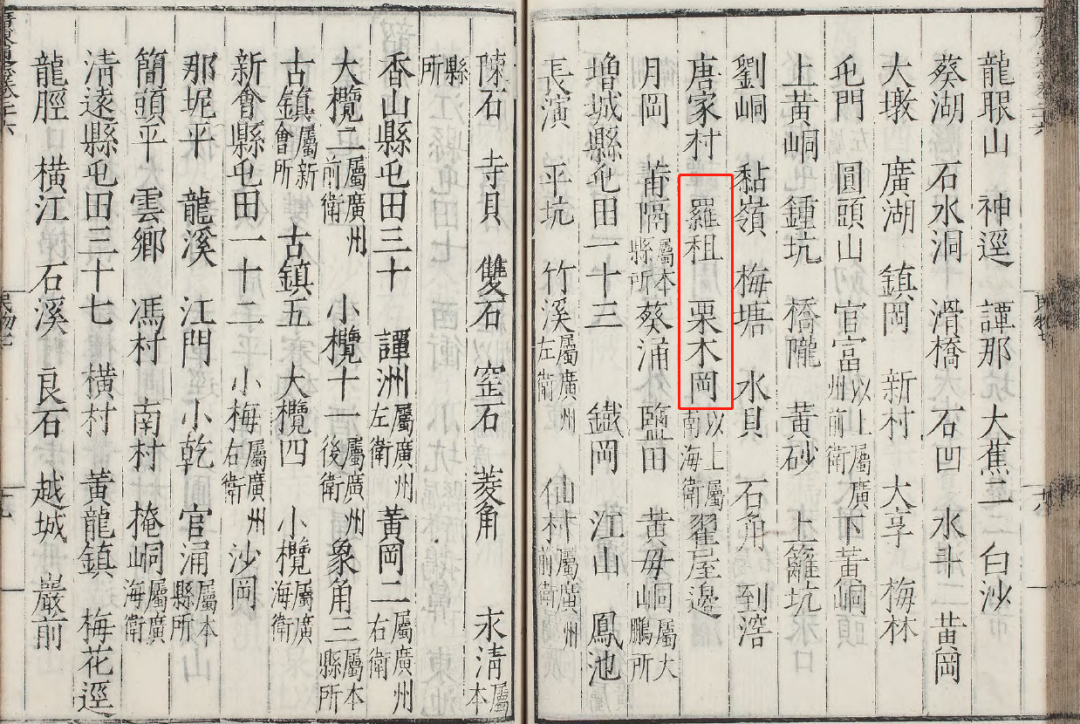 龍眼山 神逕 譚那 大蕉二 白沙
葵湖 石水洞 滑橋 石凹 水斗 黃岡
大墩 廣湖 鎮岡 新村 大亨 梅林
屯門 圓頭山 官富以上屬廣州前衛 下黃峒頭
上黃峒 鍾坑 橋隴 黃砂 上籬坑
劉峒 黏嶺 梅塘 水貝 石角 到滘
唐家村 羅租 栗木岡以上屬南海衛 翟屋邊
月岡 莆隔屬本縣所 葵涌 鹽田 黃母峒屬大鵬所
增城縣屯田一十三 鐵岡 江山 鳳池
長演 平坑 竹溪屬廣州左衛 仙村屬廣州前衛
陳石 寺貝 雙石 窑石 菱角 永清屬本
縣所
香山縣屯田三十 譚洲屬廣州左衛 黃岡二屬廣州右衛
大欖二屬廣州前衛 小欖十一屬廣州後衛 象角三屬本縣所
古鎮屬新會所 古鎮五 大欖四 小欖屬廣海衛
新會縣屯田一十二 小梅屬廣州右衛 沙岡
那坭平 龍溪 江門 小乾 官涌屬本縣所
簡頭平 雲鄉 馮村 南村 掩峒屬廣海衛
清遠縣屯田三十七 橫村 黃龍鎮 梅花逕
龍脛 橫江 石溪 良石 越城 巖前